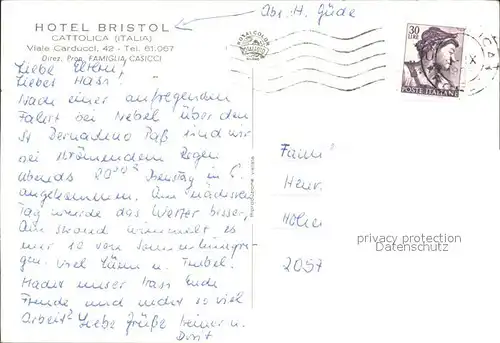 Abs. H. Güde
HOTEL BRISTOL
CATTOLICA (ITALIA)
Viale Carducci, 42 - Tel. 61.067
Direz. Prop. FAMIGLIA CASICCI
30
LIRE
POSTE ITALIANE
Liebe Eltern,
lieber Hass!
Nach einer aufregenden
Fahrt bei Nebel über den
St Bernadino Paß sind wir
bei strömendem Regen
abends 20⁰⁰ Dienstag in C.
angekommen. Am nächsten
Tag wurde das Wetter besser,
Am Strand wimmelt es
nur so von Sonnenhungri-
gen. Viel Lärm u. Trubel.
Macht unser Hass Euch
Freude und nicht so viel
Arbeit? Liebe Grüße Heiner u.
Dorit
Fam.
Heinr.
2057
privacy protection
Datenschutz